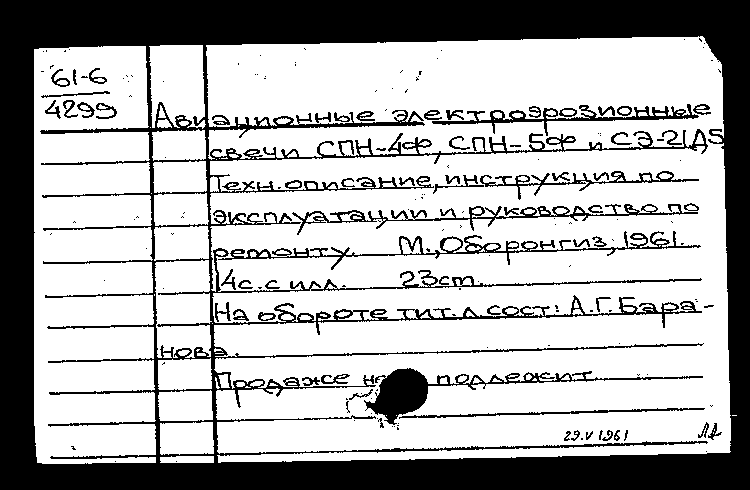 61-6
4299
Авиационные электроэрозионные
свечи СПН-4Ф, СПН-5Ф и СЭ-21Д5
Техн. описание, инструкция по
эксплуатации и руководство по
ремонту. М., Оборонгиз, 1961.
14с. с илл. 23ст.
На обороте тит. л. сост: А.Г. Бара-
нова.
Продаже подлежит
29.V 1961